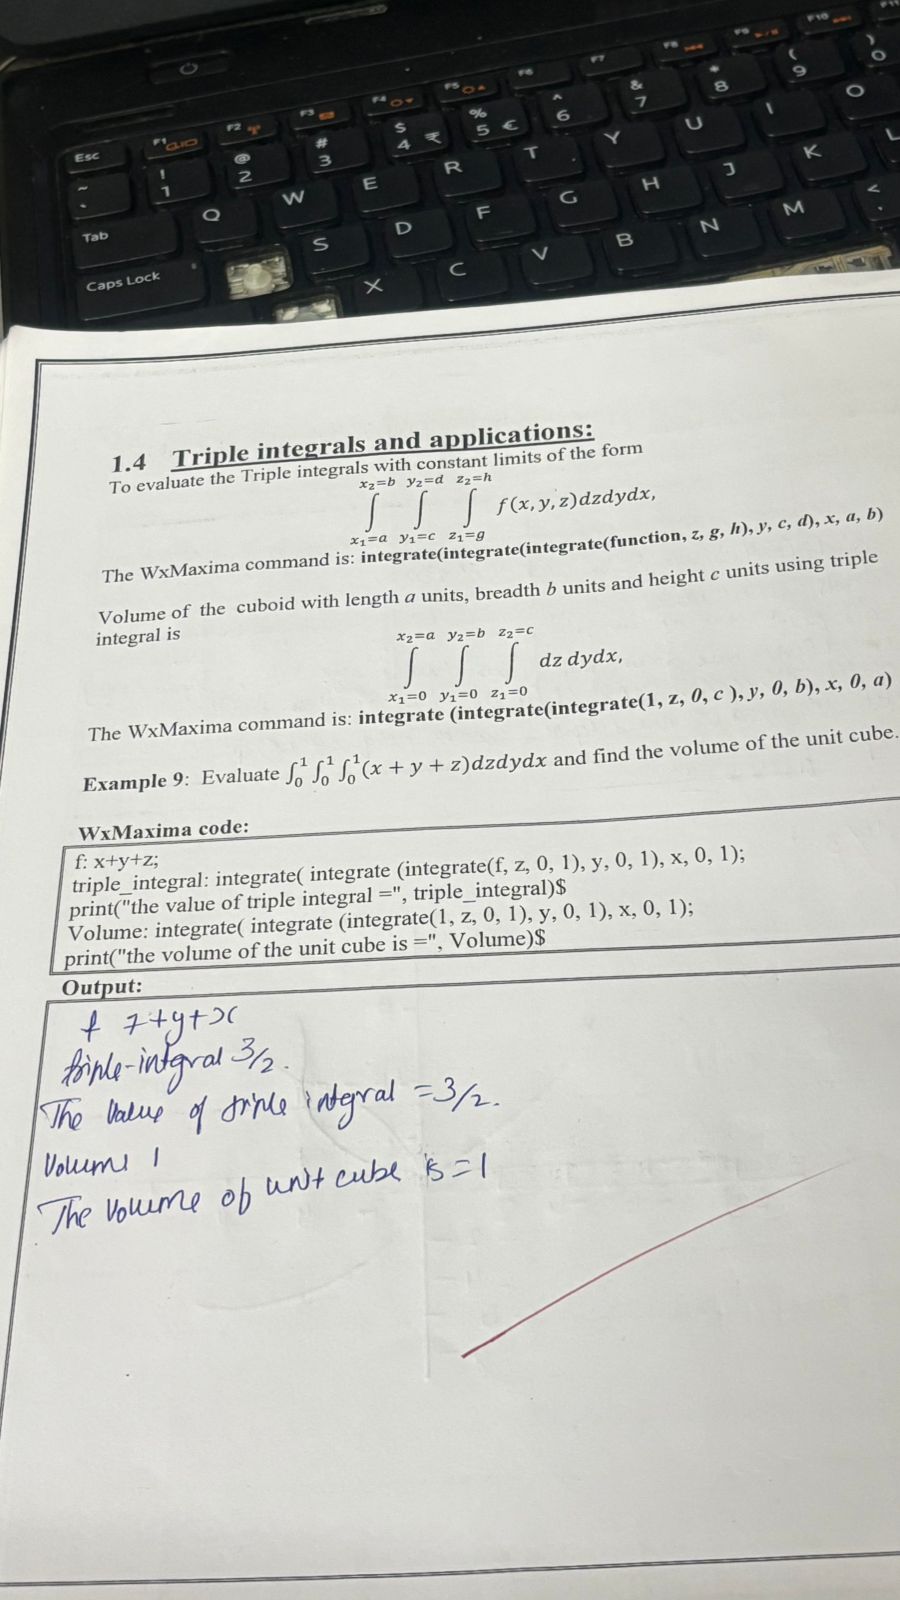 F1 F2 F3 F4 F5 F6 F7 F8 F9 F10 F11
Esc ! 1 @ 2 # 3 $ 4 ₹ % 5 € ^ 6 & 7 * 8 ( 9 ) 0
~ `
Tab Q W E R T Y U I O
Caps Lock S D F G H J K L
X C V B N M <
1.4 Triple integrals and applications:
To evaluate the Triple integrals with constant limits of the form
x₂=b y₂=d z₂=h
∫ ∫ ∫ f(x, y, z)dzdydx,
x₁=a y₁=c z₁=g
The WxMaxima command is: integrate(integrate(integrate(function, z, g, h), y, c, d), x, a, b)
Volume of the cuboid with length a units, breadth b units and height c units using triple
integral is
x₂=a y₂=b z₂=c
∫ ∫ ∫ dz dydx,
x₁=0 y₁=0 z₁=0
The WxMaxima command is: integrate (integrate(integrate(1, z, 0, c ), y, 0, b), x, 0, a)
Example 9: Evaluate ∫₀¹ ∫₀¹ ∫₀¹(x + y + z)dzdydx and find the volume of the unit cube.
WxMaxima code:
f: x+y+z;
triple_integral: integrate( integrate (integrate(f, z, 0, 1), y, 0, 1), x, 0, 1);
print("the value of triple integral =", triple_integral)$
Volume: integrate( integrate (integrate(1, z, 0, 1), y, 0, 1), x, 0, 1);
print("the volume of the unit cube is =", Volume)$
Output:
f z+y+x
triple-integral 3/2.
The Value of triple integral = 3/2.
Volume 1
The Volume of unit cube is = 1